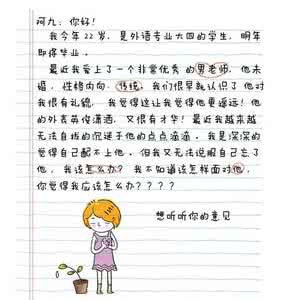 阿九：你好！
我今年22岁，是外语专业大四的学生，明年
即得毕业。
最近我爱上了一个非常优秀的男老师，他未
婚，性格内向，传统，我们很早就认识了他对
我很有礼貌，我觉得这让我觉得他更遥远！他
的外表英俊潇洒，又很有才华！最近我越来越
无法自拔的沉迷于他的点点滴滴。我是深深的
觉得自己配不上他。但我又无法说服自己忘了
他，我该怎么办？我不知道该怎样面对他，
你觉得我应该怎么办？？？？
想听听你的意见